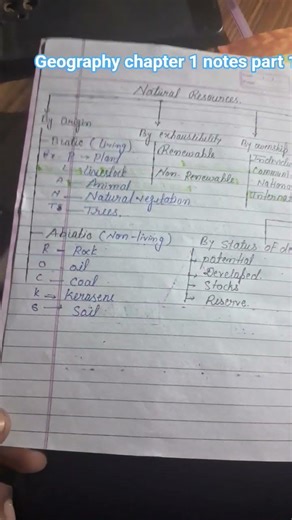 Geography chapter 1 notes part
Natural Resources.
By Origin
Biotic (living)
Ex. P → Plant
L Livestock
A Animal
N — Natural vegetation
T → Trees.
Abiotic (Non-living)
R — Rock
O — Oil
C — Coal
K → Kerosene
S → Soil
By exhaustibility
Renewable
Non-Renewable
By ownership
Individu
Communi
Nationa
Internat
By Status of de
potential
Developed
Stocks
Reserve.